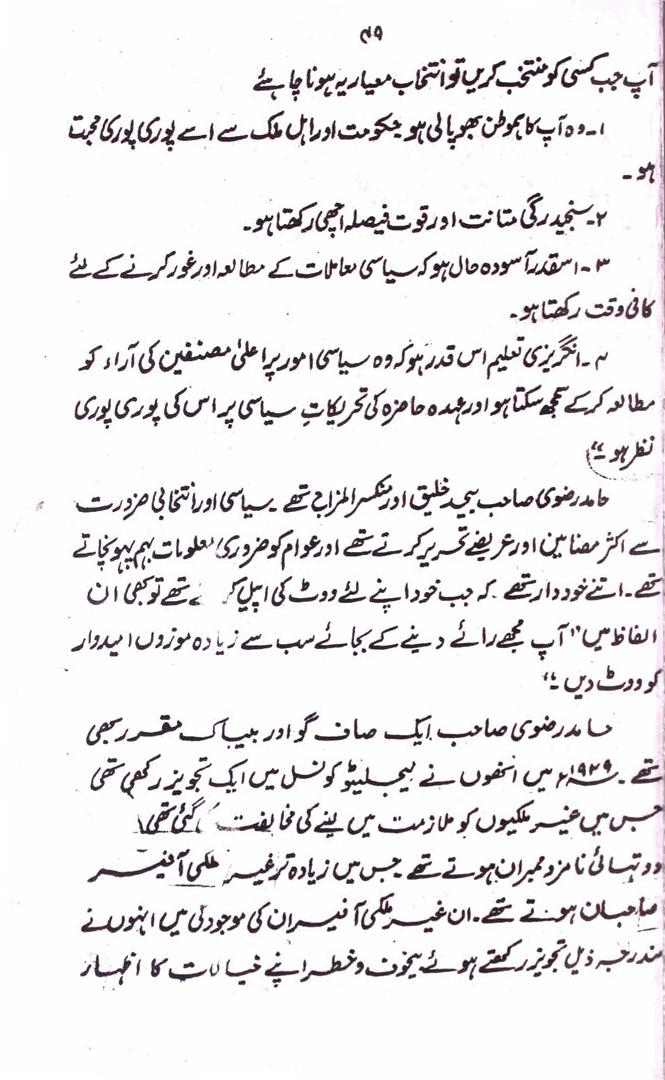 ۴۹
آپ جب کسی کو منتخب کریں تو انتخاب معیار یہ ہونا چاہئے
۱۔ وہ آپ کا ہموطن بھوپالی ہو حکومت اور اہل ملک سے اسے پوری پوری محبت
ہو۔
۲۔ سنجیدگی متانت اور قوت فیصلہ اچھی رکھتا ہو۔
۳۔ اسقدر آسودہ حال ہو کہ سیاسی معاملات کے مطالعہ اور غور کرنے کے لئے
کافی وقت رکھتا ہو۔
۴۔ انگریزی تعلیم اس قدر ہو کہ وہ سیاسی امور پر اعلیٰ مصنفین کی آراء کو
مطالعہ کر کے سمجھ سکتا ہو اور عہدہ حاضرہ کی تحریکاتِ سیاسی پر اس کی پوری پوری
نظر ہو۔“
حامد رضوی صاحب بیحد خلیق اور منکسر المزاج تھے۔ سیاسی اور انتخابی ضرورت
سے اکثر مضامین اور عریضے تحریر کرتے تھے اور عوام کو ضروری معلومات بہم پہونچاتے
تھے۔ اتنے خوددار تھے کہ جب خود اپنے لئے ووٹ کی اپیل کر تے تھے تو بھی ان
الفاظ میں ”آپ مجھے رائے دینے کے بجائے سب سے زیادہ موزوں امیدوار
کو ووٹ دیں۔“
حامد رضوی صاحب ایک صاف گو اور بیباک مقرر بھی
تھے۔ ۱۹۲۹ء میں انھوں نے لیجسلیٹو کونسل میں ایک تجویز رکھی تھی
جس میں غیر ملکیوں کو ملازمت میں لینے کی مخالفت کی گئی تھی
دو تہائی نامزد ممبران ہوتے تھے۔ جس میں زیادہ تر غیر ملکی آفیسر
صاحبان ہوتے تھے۔ ان غیر ملکی آفیسران کی موجودگی میں انہوں نے
مندرجہ ذیل تجویز رکھتے ہوئے بیخوف و خطر اپنے خیالات کا اظہار